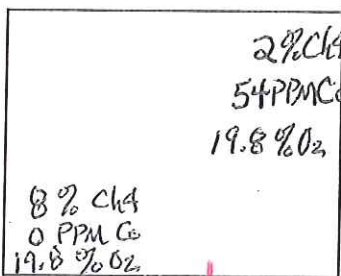 2% CH4
54 PPM CO
19.8 % O2
8 % CH4
0 PPM CO
19.8 % O2